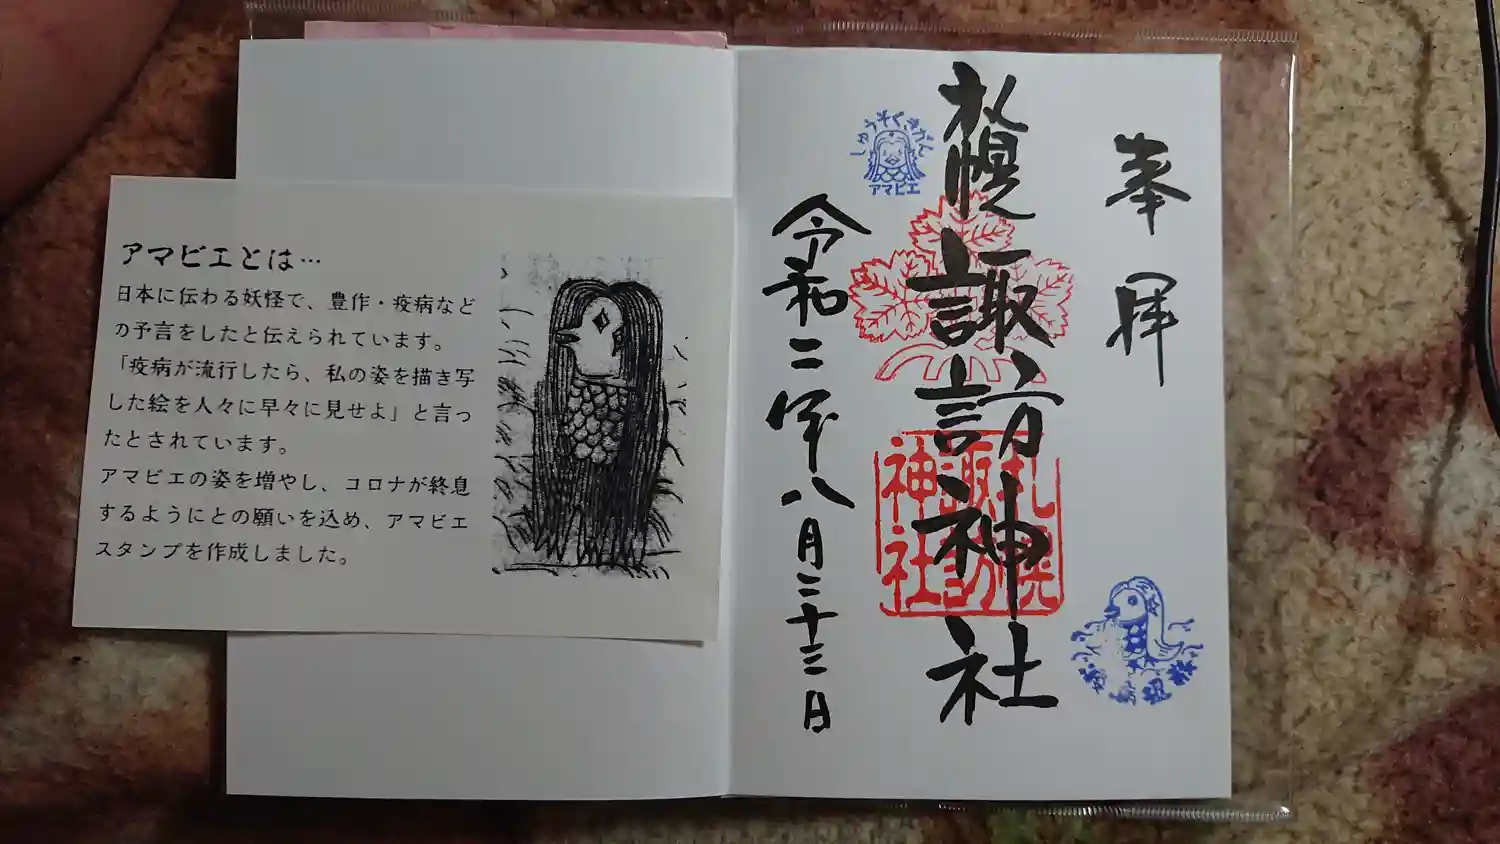 アマビエとは…
日本に伝わる妖怪で、豊作・疫病など
の予言をしたと伝えられています。
「疫病が流行したら、私の姿を描き写
した絵を人々に早々に見せよ」と言っ
たとされています。
アマビエの姿を増やし、コロナが終息
するようにとの願いを込め、アマビエ
スタンプを作成しました。
奉拝
札幌諏訪神社
札幌
諏訪
神社
しゅうそくきがん
アマビエ
令和二年八月二十三日